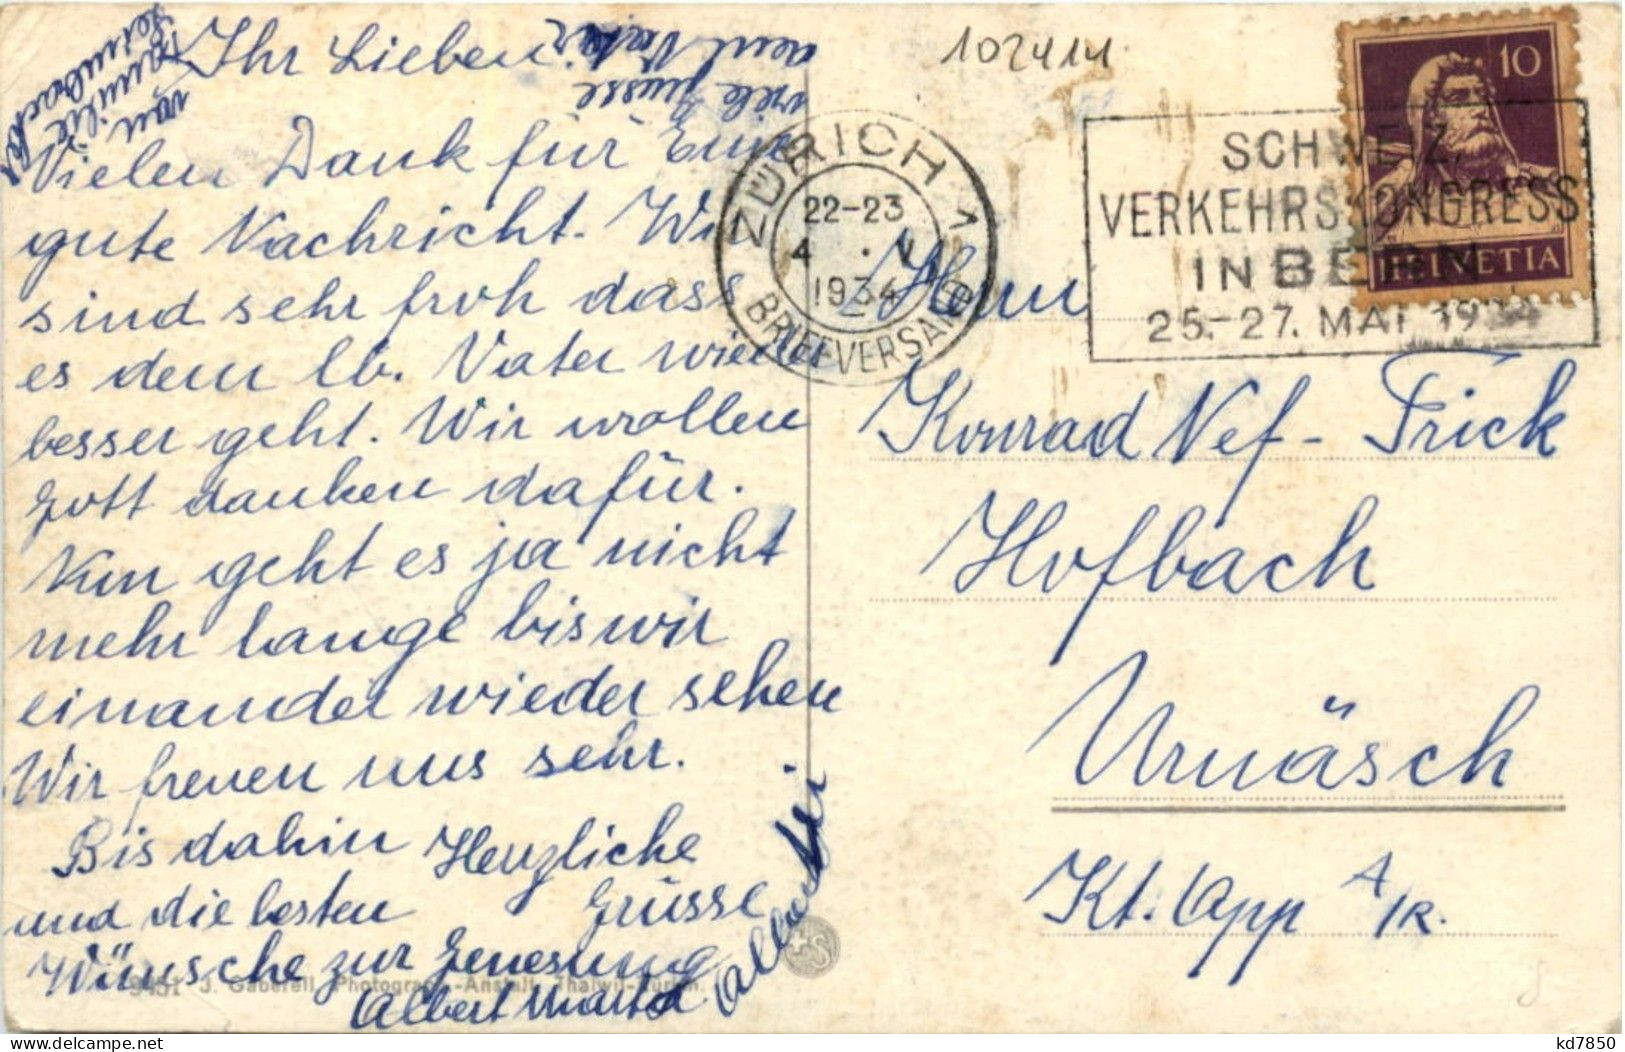 Ihr Lieben
Vielen Dank für Eure
gute Nachricht. Wir
sind sehr froh dass
es dem lb. Vater wieder
besser geht. Wir wollen
Gott danken dafür.
Nun geht es ja nicht
mehr lange bis wir
einander wieder sehen
Wir freuen uns sehr.
Bis dahin Herzliche
und die besten Grüsse
Wünsche zur Genesung
Albert
viele Grüsse
von
Familie
102414
ZÜRICH 1
22-23
4
1934
BRIEFVERSAND
SCHWEIZ.
VERKEHRSKONGRESS
IN BERN
25.-27. MAI 1934
10
HELVETIA
Herrn
Konrad Nef - Frick
Hofbach
Urnäsch
Kt. App A/R.
9451 J. Gaberell, Photograph.-Anstalt, Thalwil-Zürich.
kd7850